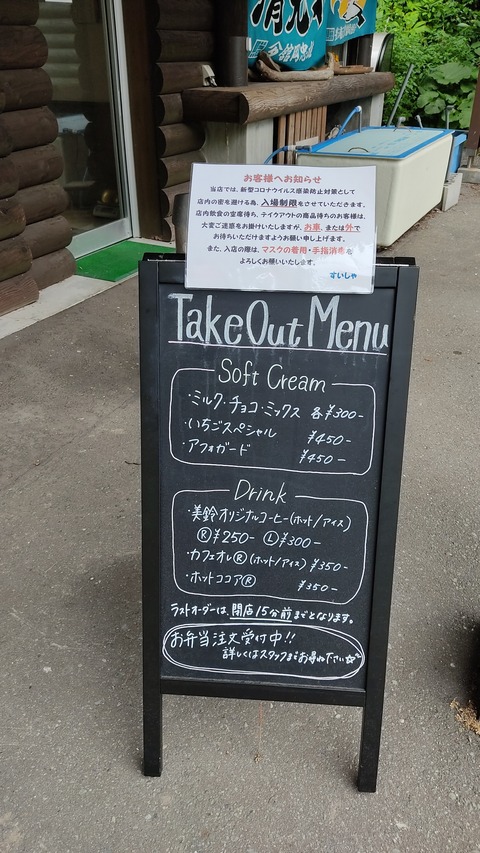 お客様へお知らせ
当店では、新型コロナウイルス感染防止対策として
店内の密を避ける為、入場制限をさせていただきます。
店内飲食の空席待ち、テイクアウトの商品待ちのお客様は、
大変ご迷惑をお掛けいたしますが、お車、または外で
お待ちいただけますようお願い申し上げます。
また、入店の際は、マスクの着用・手指消毒を
よろしくお願いいたします。
すいしゃ
Take Out Menu
Soft Cream
・ミルク・チョコ・ミックス 各¥300-
・いちごスペシャル ¥450-
・アフォガード ¥450-
Drink
・美鈴オリジナルコーヒー(ホット/アイス)
Ⓡ¥250- Ⓛ¥300-
・カフェオレⓇ(ホット/アイス) ¥350-
・ホットココアⓇ ¥350-
ラストオーダーは、閉店15分前までとなります。
お弁当注文受付中!!
詳しくはスタッフまでお尋ね下さい☆